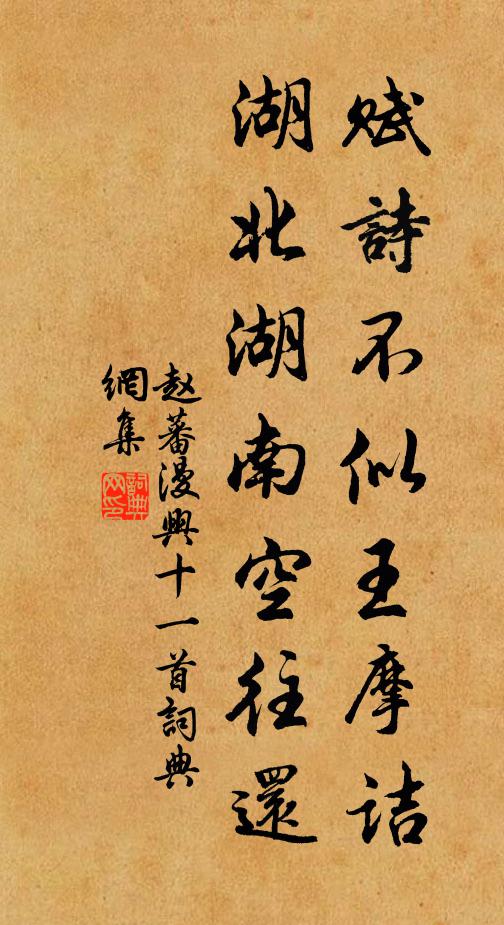 赋詩不似王摩诘
湖北湖南空往還
赵蕃漫興十一首詞典
網集
詞典
网印